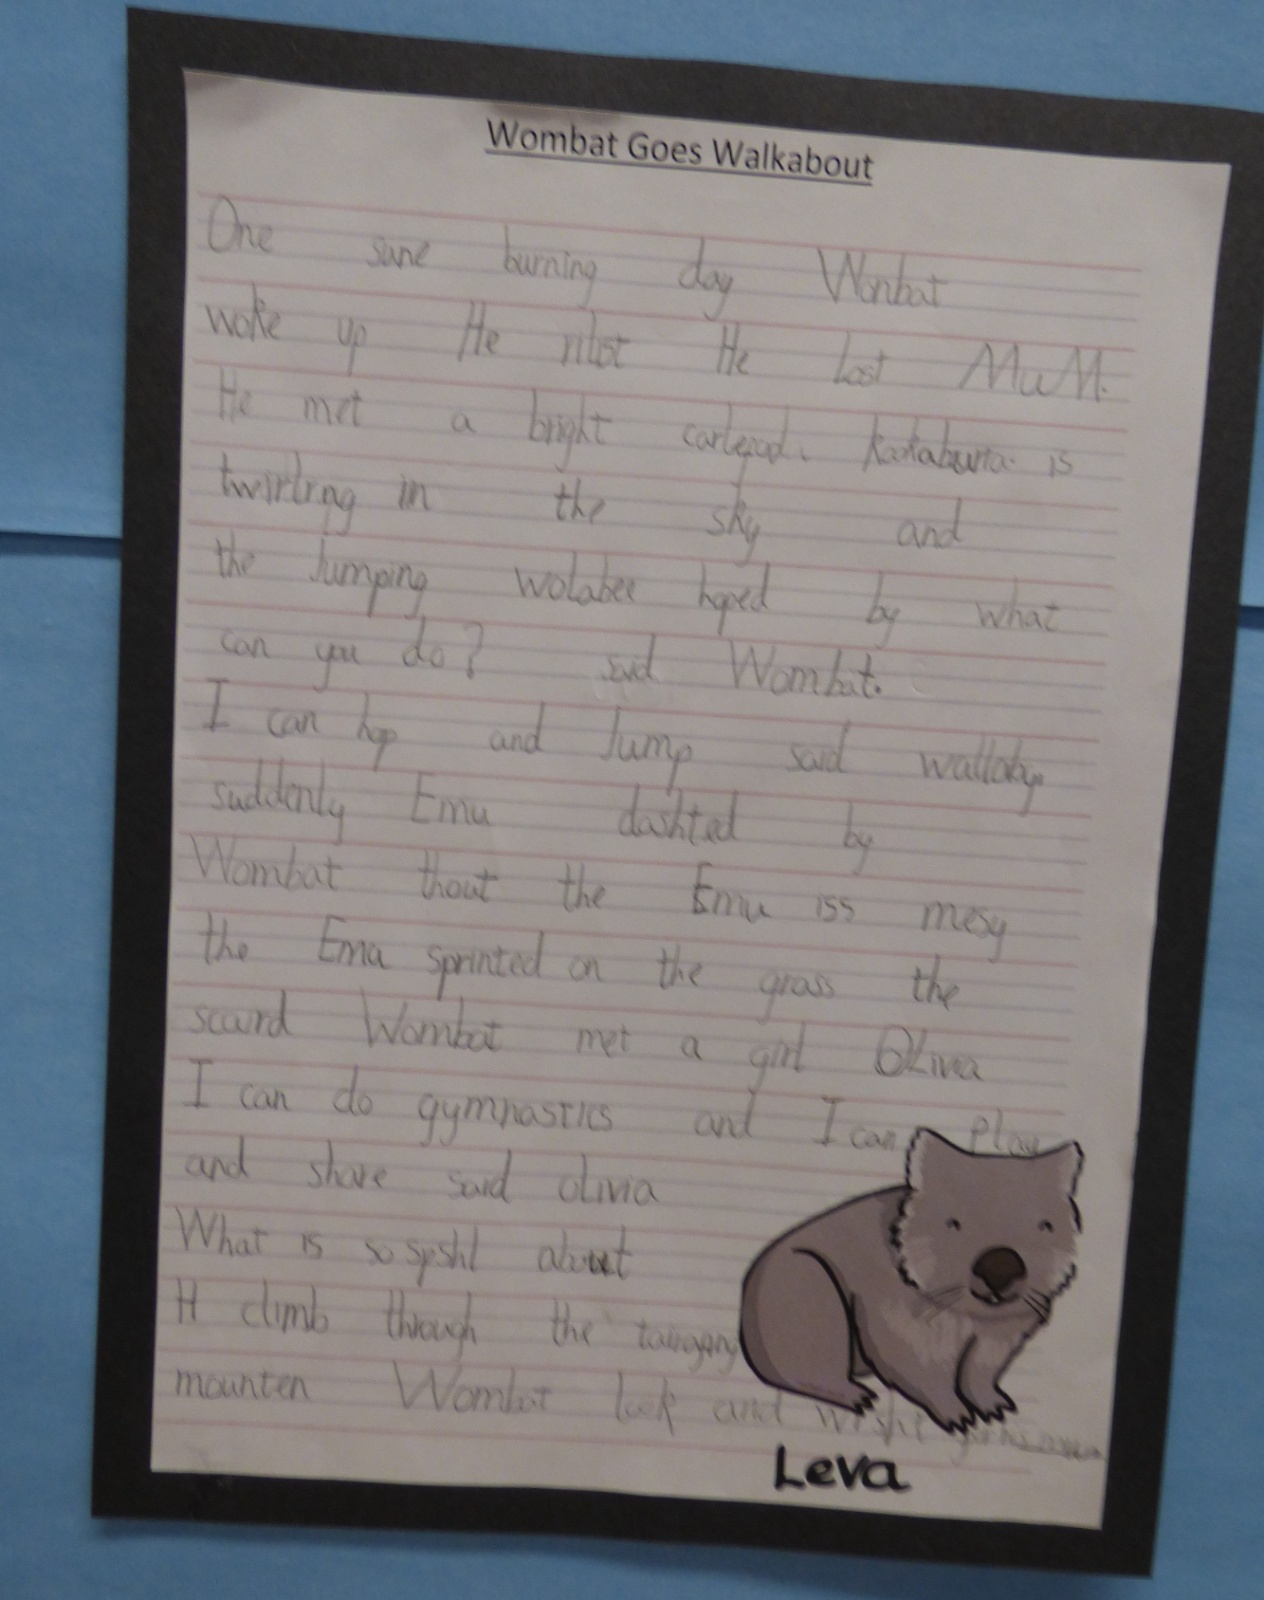 Wombat Goes Walkabout
One sune burning day Wonbat
woke up He rilist He lost MuM.
He met a bright carlepul. kookaburra. is
twirlrng in the sky and
the Jumping wolabee hoped by what
can you do? said Wombat.
I can hop and Jump said wallaby.
suddenly Emu dashted by
Wombat thout the Emu iss mesy
the Ema sprinted on the grass the
scaurd Wombat met a girl OLivia
I can do gymnastics and I can Play
and share said olivia
What is so spshl about
H climb through the
mounten Wombat look and wisht
Leva